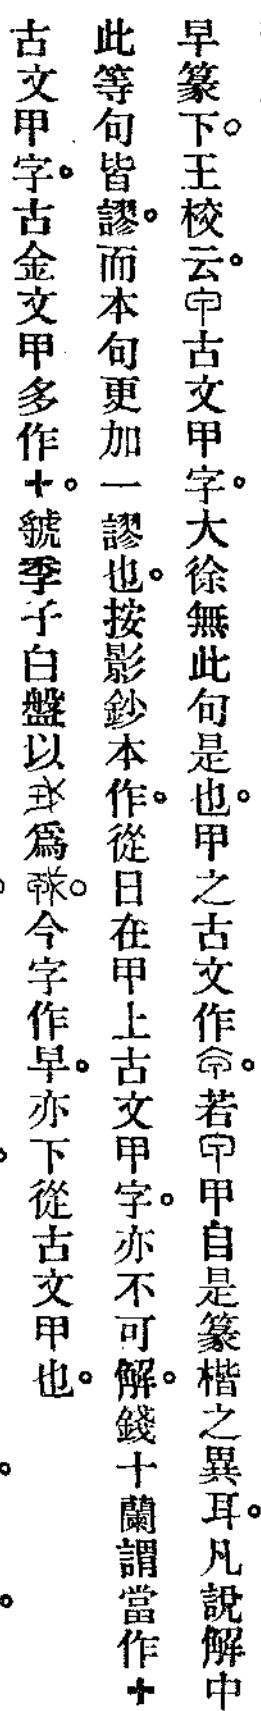 早篆下。王校云。古文甲字。大徐無此句是也。甲之古文作。若甲自是篆楷之異耳。凡說解中
此等句皆謬。而本句更加一謬也。按影鈔本作。從日在甲上古文甲字。亦不可解。錢十蘭謂當作十
古文甲字。古金文甲多作十。虢季子白盤以爲。今字作早。亦下從古文甲也。